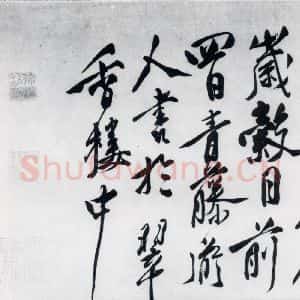 歲穀日前
四日青藤道
人書於翠
香樓中
Shufawang.cn